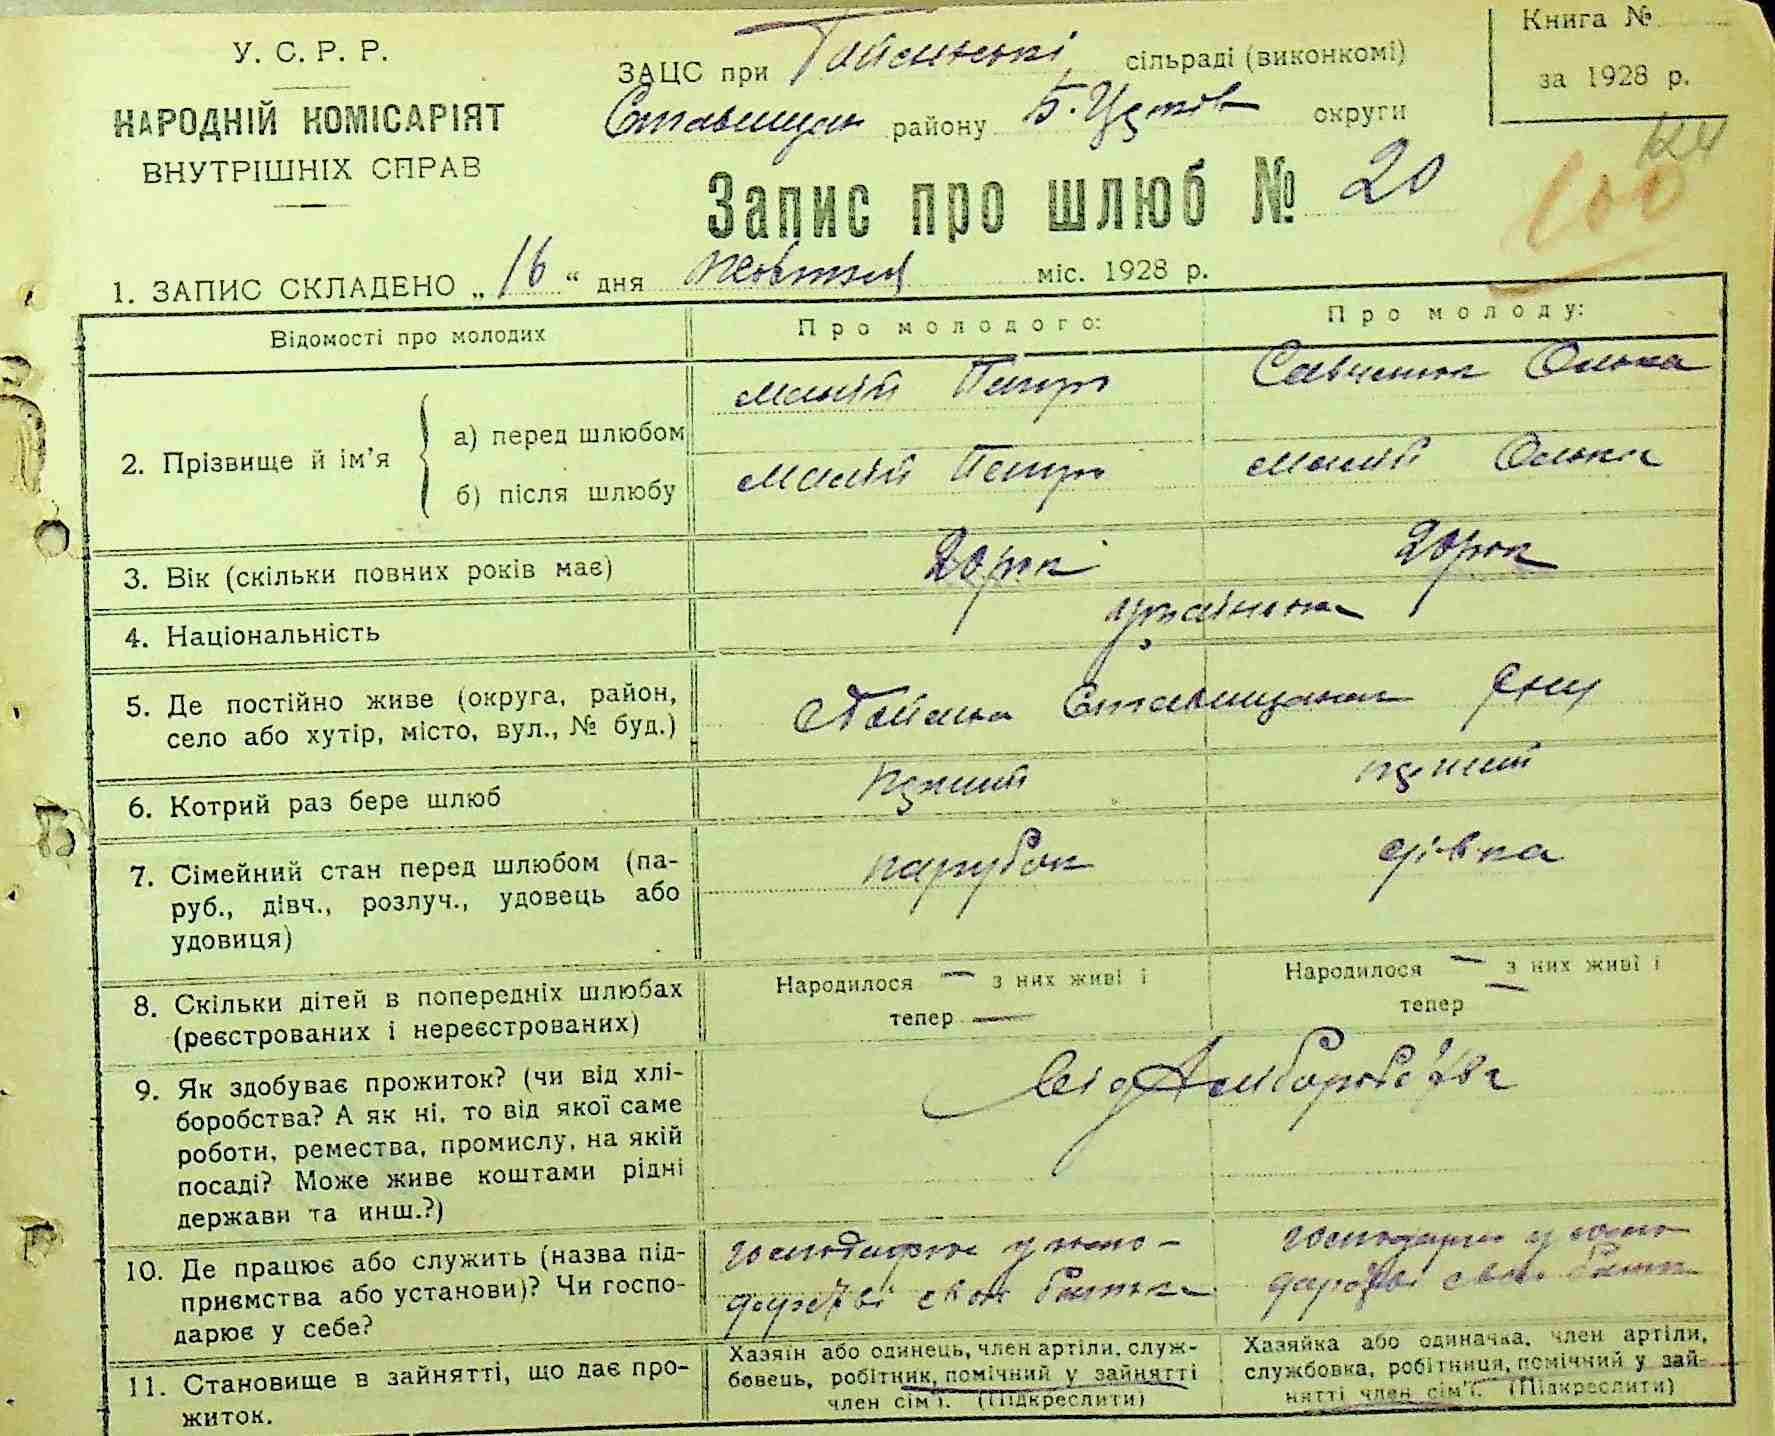 У. С. Р. Р.
НАРОДНІЙ КОМІСАРІЯТ
ВНУТРІШНІХ СПРАВ
ЗАЦС при Гайсинські сільраді (виконкомі)
Ставищан району Б. Церків округи
Книга №
за 1928 р.
Запис про шлюб № 20
100
1. ЗАПИС СКЛАДЕНО „16“ дня жовтня міс. 1928 р.
Відомості про молодих
Про молодого:
Про молоду:
2. Прізвище й ім’я
а) перед шлюбом
Малій Петро
Савченко Олька
б) після шлюбу
Малій Петро
Малій Олька
3. Вік (скільки повних років має)
20 рок
20 рок
4. Національність
5. Де постійно живе (округа, район,
село або хутір, місто, вул., № буд.)
Ставищан
6. Котрий раз бере шлюб
перший
перший
7. Сімейний стан перед шлюбом (па-
руб., дівч., розлуч., удовець або
удовиця)
парубок
дівка
8. Скільки дітей в попередніх шлюбах
(реєстрованих і нереєстрованих)
Народилося — з них живі і
тепер —
Народилося — з них живі і
тепер —
9. Як здобуває прожиток? (чи від хлі-
боробства? А як ні, то від якої саме
роботи, ремества, промислу, на якій
посаді? Може живе коштами рідні
держави та инш.?)
Від хліборобства
10. Де працює або служить (назва під-
приємства або установи)? Чи госпо-
дарює у себе?
господарює у госпо-
дарстві свон батька
господарює у госпо
дарстві свон батьк
11. Становище в зайнятті, що дає про-
житок.
Хазяїн або одинець, член артіли, служ-
бовець, робітник, помічний у зайнятті
член сім’ї. (Підкреслити)
Хазяйка або одиначка, член артіли,
службовка, робітниця, помічний у зай-
нятті член сім’ї. (Підкреслити)